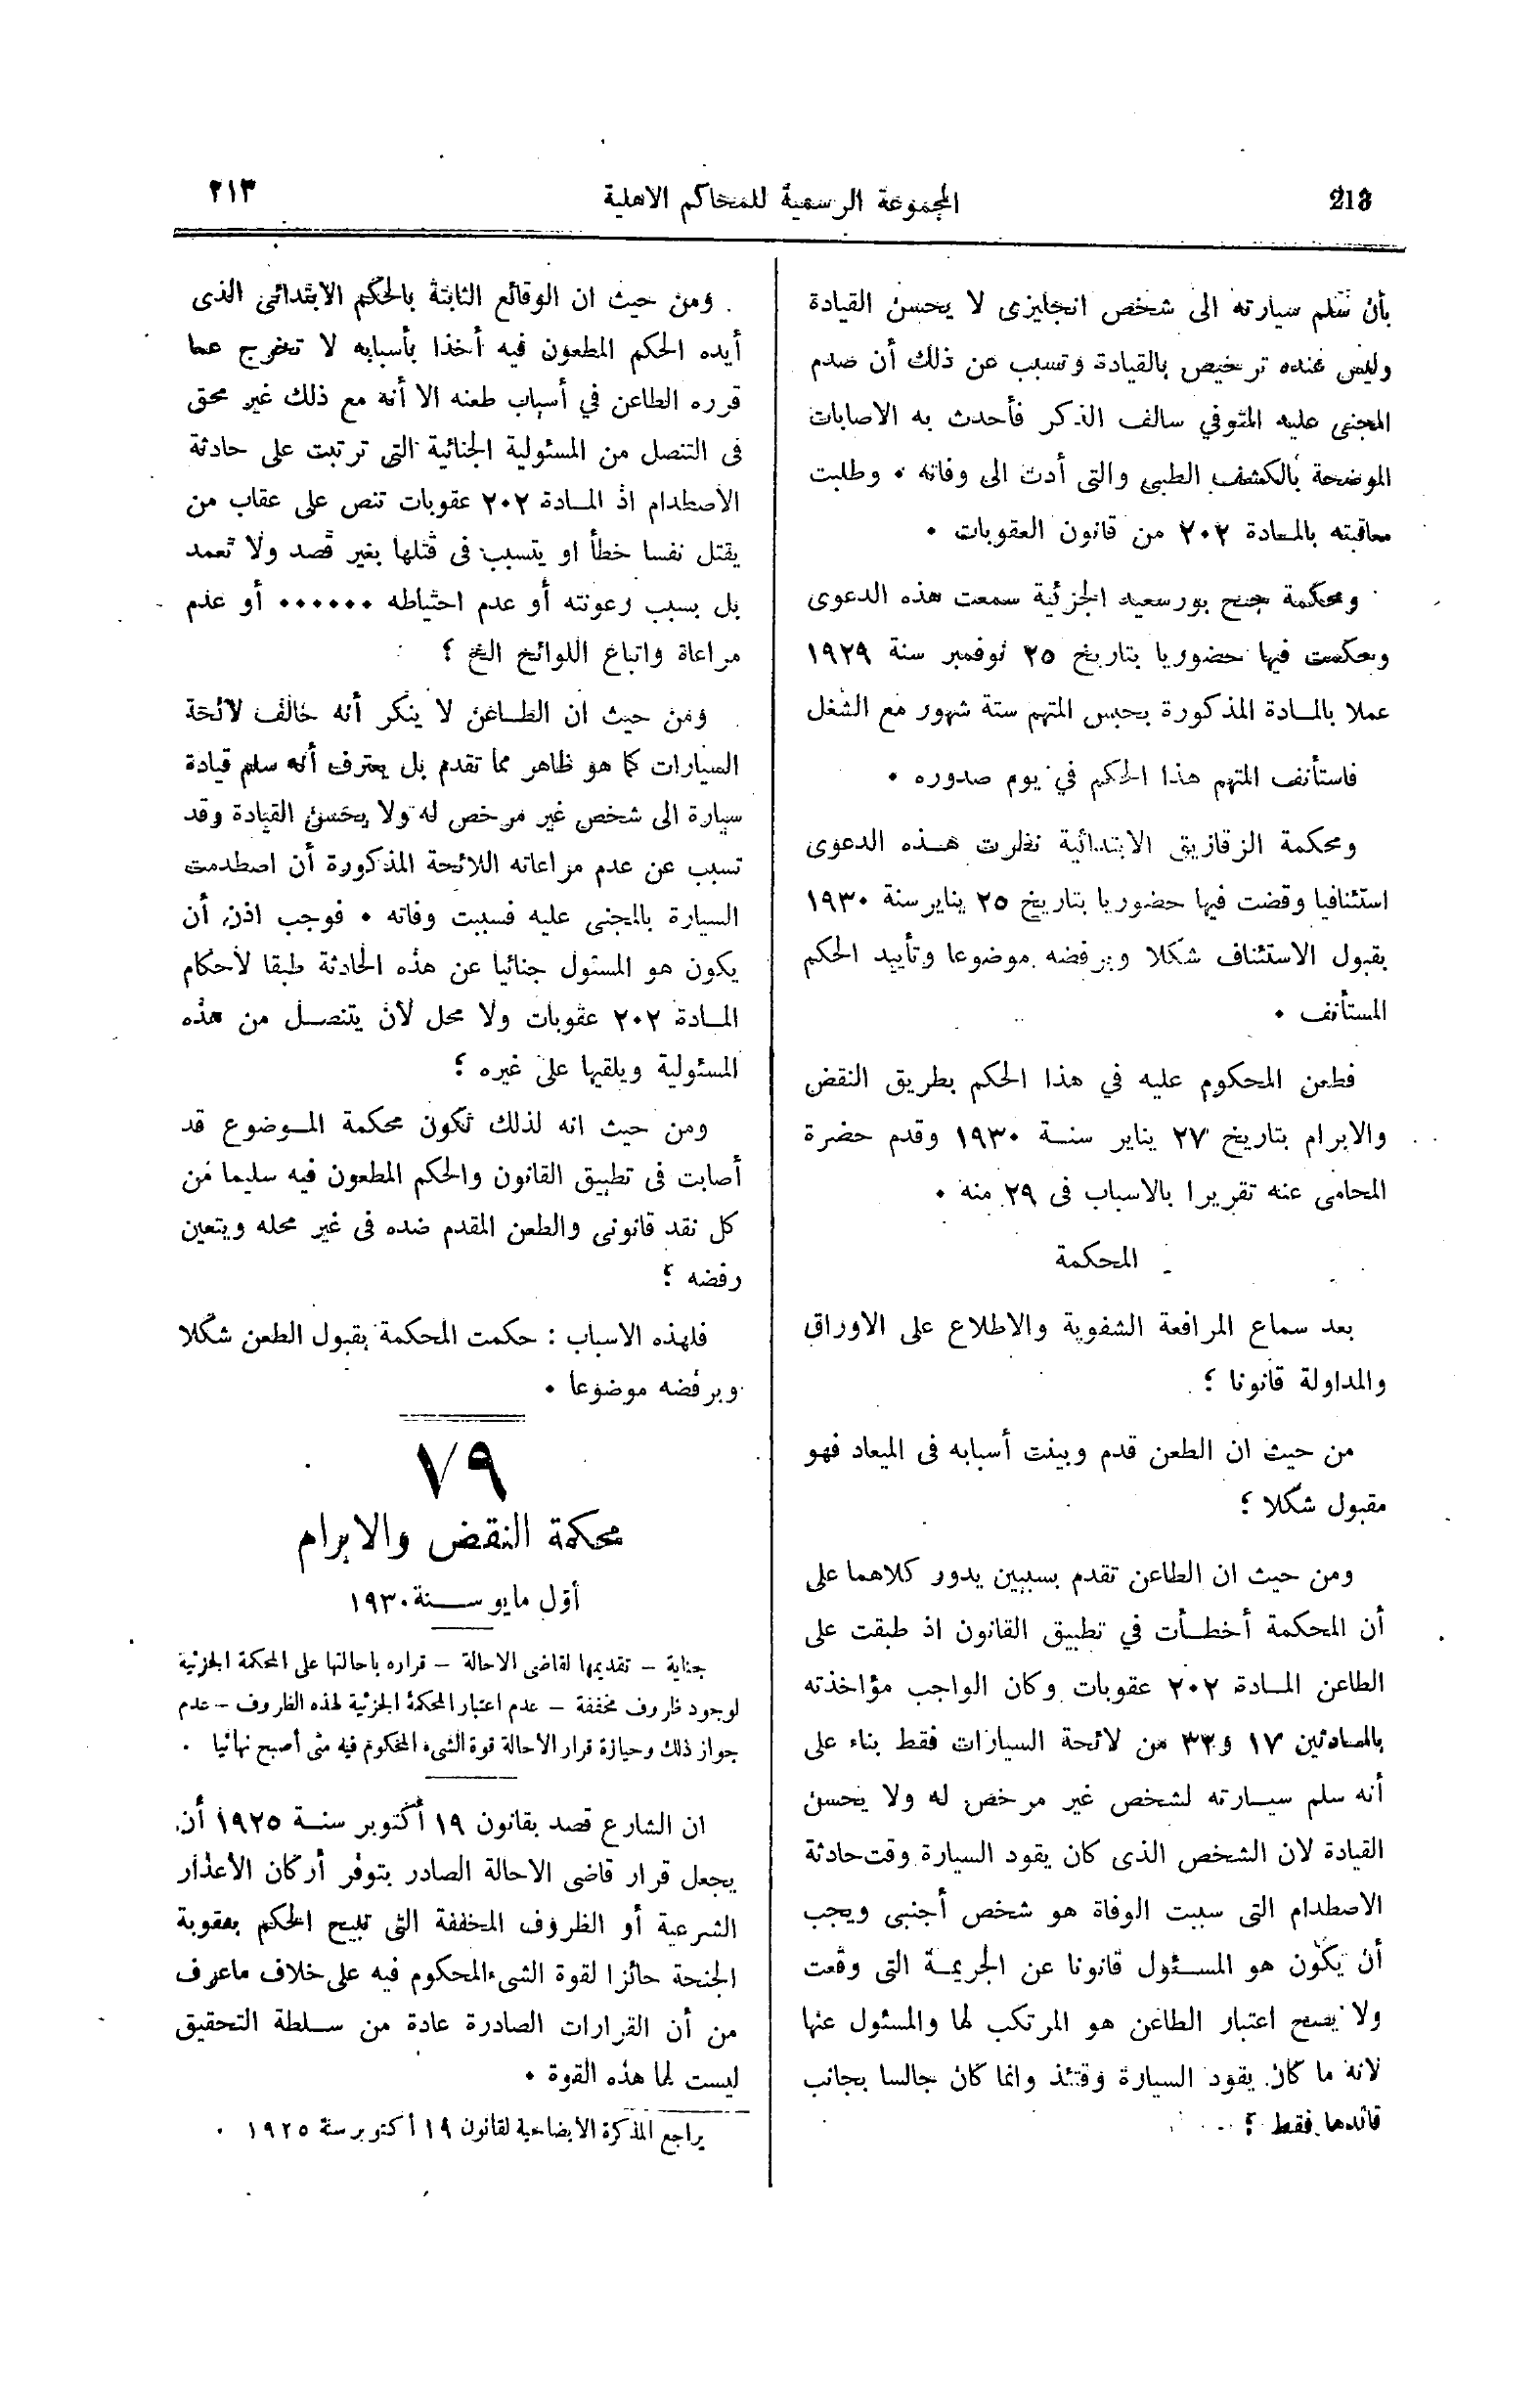 213
المجموعة الرسمية للمحاكم الاهلية
٢١٣
بأن سلم سيارته الى شخص انجليزى لا يحسن القيادة
وليس عنده ترخيص بالقيادة وتسبب عن ذلك أن صدم
المجنى عليه المتوفي سالف الذكر فأحدث به الاصابات
الموضحة بالكشف الطبي والتى أدت الى وفاته ٠ وطلبت
معاقبته بالمادة ٢٠٢ من قانون العقوبات ٠
ومحكمة جنح بورسعيد الجزئية سمعت هذه الدعوى
وحكمت فيها حضوريا بتاريخ ٢٥ نوفمبر سنة ١٩٢٩
عملا بالمادة المذكورة بحبس المتهم ستة شهور مع الشغل
فاستأنف المتهم هذا الحكم في يوم صدوره ٠
ومحكمة الزقازيق الابتدائية نظرت هذه الدعوى
استئنافيا وقضت فيها حضوريا بتاريخ ٢٥ يناير سنة ١٩٣٠
بقبول الاستئناف شكلا وبرفضه موضوعا وتأييد الحكم
المستأنف ٠
فطعن المحكوم عليه في هذا الحكم بطريق النقض
والابرام بتاريخ ٢٧ يناير سنة ١٩٣٠ وقدم حضرة
المحامى عنه تقريرا بالاسباب فى ٢٩ منه ٠
المحكمة
بعد سماع المرافعة الشفوية والاطلاع على الاوراق
والمداولة قانونا ؛
من حيث ان الطعن قدم وبينت أسبابه فى الميعاد فهو
مقبول شكلا ؛
ومن حيث ان الطاعن تقدم بسببين يدور كلاهما على
أن المحكمة أخطأت في تطبيق القانون اذ طبقت على
الطاعن المادة ٢٠٢ عقوبات وكان الواجب مؤاخذته
بالمادتين ١٧ و٣٢ من لائحة السيارات فقط بناء على
أنه سلم سيارته لشخص غير مرخص له ولا يحسن
القيادة لان الشخص الذى كان يقود السيارة وقت حادثة
الاصطدام التى سببت الوفاة هو شخص أجنبى ويجب
أن يكون هو المسئول قانونا عن الجريمة التى وقعت
ولا يصح اعتبار الطاعن هو المرتكب لها والمسئول عنها
لانه ما كان يقود السيارة وقتئذ وانما كان جالسا بجانب
قائدها فقط ؛
ومن حيث ان الوقائع الثابتة بالحكم الابتدائى الذى
أيده الحكم المطعون فيه أخذا بأسبابه لا تخرج عما
قرره الطاعن في أسباب طعنه الا أنه مع ذلك غير محق
فى التنصل من المسئولية الجنائية التى ترتبت على حادثة
الاصطدام اذ المادة ٢٠٢ عقوبات تنص على عقاب من
يقتل نفسا خطأ او يتسبب فى قتلها بغير قصد ولا تعمد
بل بسبب رعونته أو عدم احتياطه ٠٠٠٠٠٠ أو عدم
مراعاة واتباع اللوائح الخ ؟
ومن حيث ان الطاعن لا ينكر أنه خالف لائحة
السيارات كما هو ظاهر مما تقدم بل يعترف أنه سلم قيادة
سيارة الى شخص غير مرخص له ولا يحسن القيادة وقد
تسبب عن عدم مراعاته اللائحة المذكورة أن اصطدمت
السيارة بالمجنى عليه فسببت وفاته ٠ فوجب اذن أن
يكون هو المسئول جنائيا عن هذه الحادثة طبقا لأحكام
المادة ٢٠٢ عقوبات ولا محل لأن يتنصل من هذه
المسئولية ويلقيها على غيره ؛
ومن حيث انه لذلك تكون محكمة الموضوع قد
أصابت فى تطبيق القانون والحكم المطعون فيه سليما من
كل نقد قانونى والطعن المقدم ضده فى غير محله ويتعين
رفضه ؛
فلهذه الاسباب : حكمت المحكمة بقبول الطعن شكلا
وبرفضه موضوعا ٠
٧٩
محكمة النقض والابرام
أول مايو سنة ١٩٣٠
جناية – تقديمها لقاضى الاحالة – قراره باحالتها على المحكمة الجزئية
لوجود ظروف مخففة – عدم اعتبار المحكمة الجزئية لهذه الظروف – عدم
جواز ذلك وحيازة قرار الاحالة قوة الشىء المحكوم فيه متى أصبح نهائيا .
ان الشارع قصد بقانون ١٩ أكتوبر سنة ١٩٢٥ أن
يجعل قرار قاضى الاحالة الصادر بتوفر أركان الأعذار
الشرعية أو الظروف المخففة التى تبيح الحكم بعقوبة
الجنحة حائزا لقوة الشىء المحكوم فيه على خلاف ماعرف
من أن القرارات الصادرة عادة من سلطة التحقيق
ليست لها هذه القوة ٠
يراجع المذكرة الايضاحية لقانون ١٩ أكتوبر سنة ١٩٢٥ .